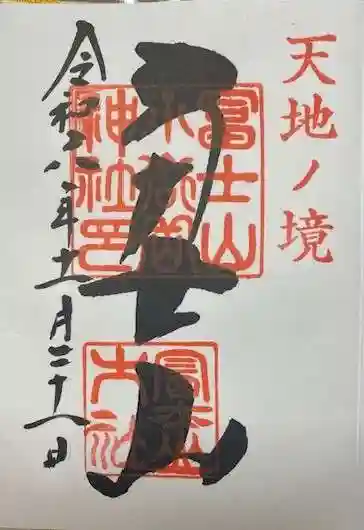 天地ノ境
富士山
小御嶽
神社印
富士山
令和六年十一月二十八日